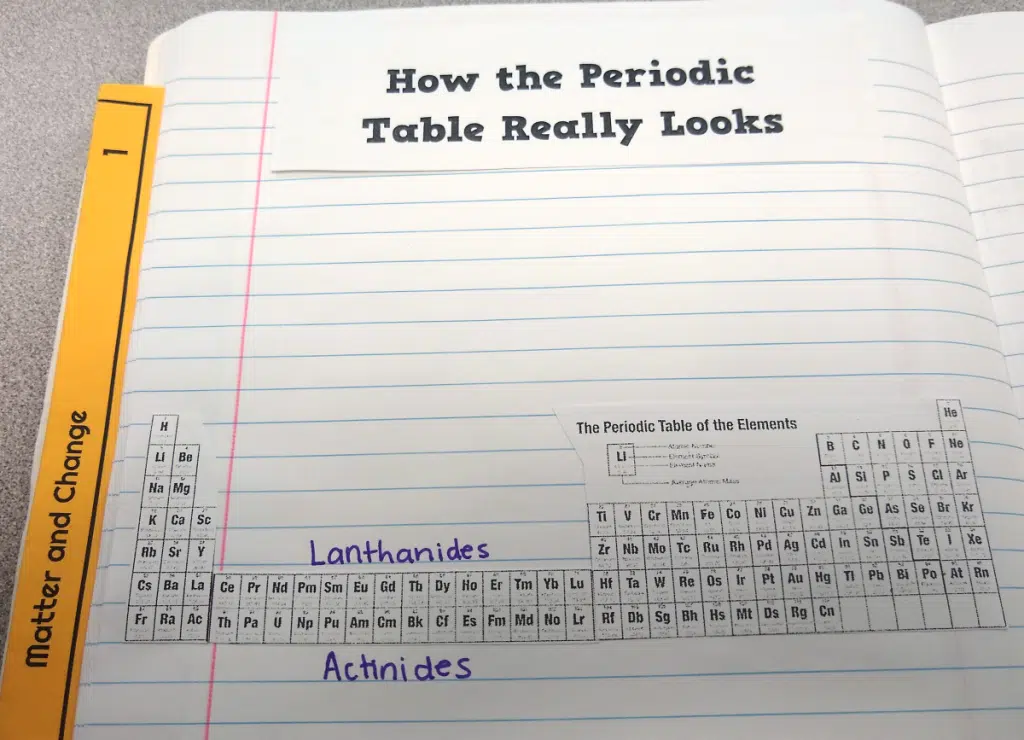 How the Periodic
Table Really Looks
1
Matter and Change
The Periodic Table of the Elements
H He
Li Be B C N O F Ne
Na Mg Al Si P S Cl Ar
K Ca Sc Ti V Cr Mn Fe Co Ni Cu Zn Ga Ge As Se Br Kr
Rb Sr Y Zr Nb Mo Tc Ru Rh Pd Ag Cd In Sn Sb Te I Xe
Li
Average Atomic Mass
Lanthanides
Cs Ba La Ce Pr Nd Pm Sm Eu Gd Tb Dy Ho Er Tm Yb Lu Hf Ta W Re Os Ir Pt Au Hg Tl Pb Bi Po At Rn
Fr Ra Ac Th Pa U Np Pu Am Cm Bk Cf Es Fm Md No Lr Rf Db Sg Bh Hs Mt Ds Rg Cn
Actinides